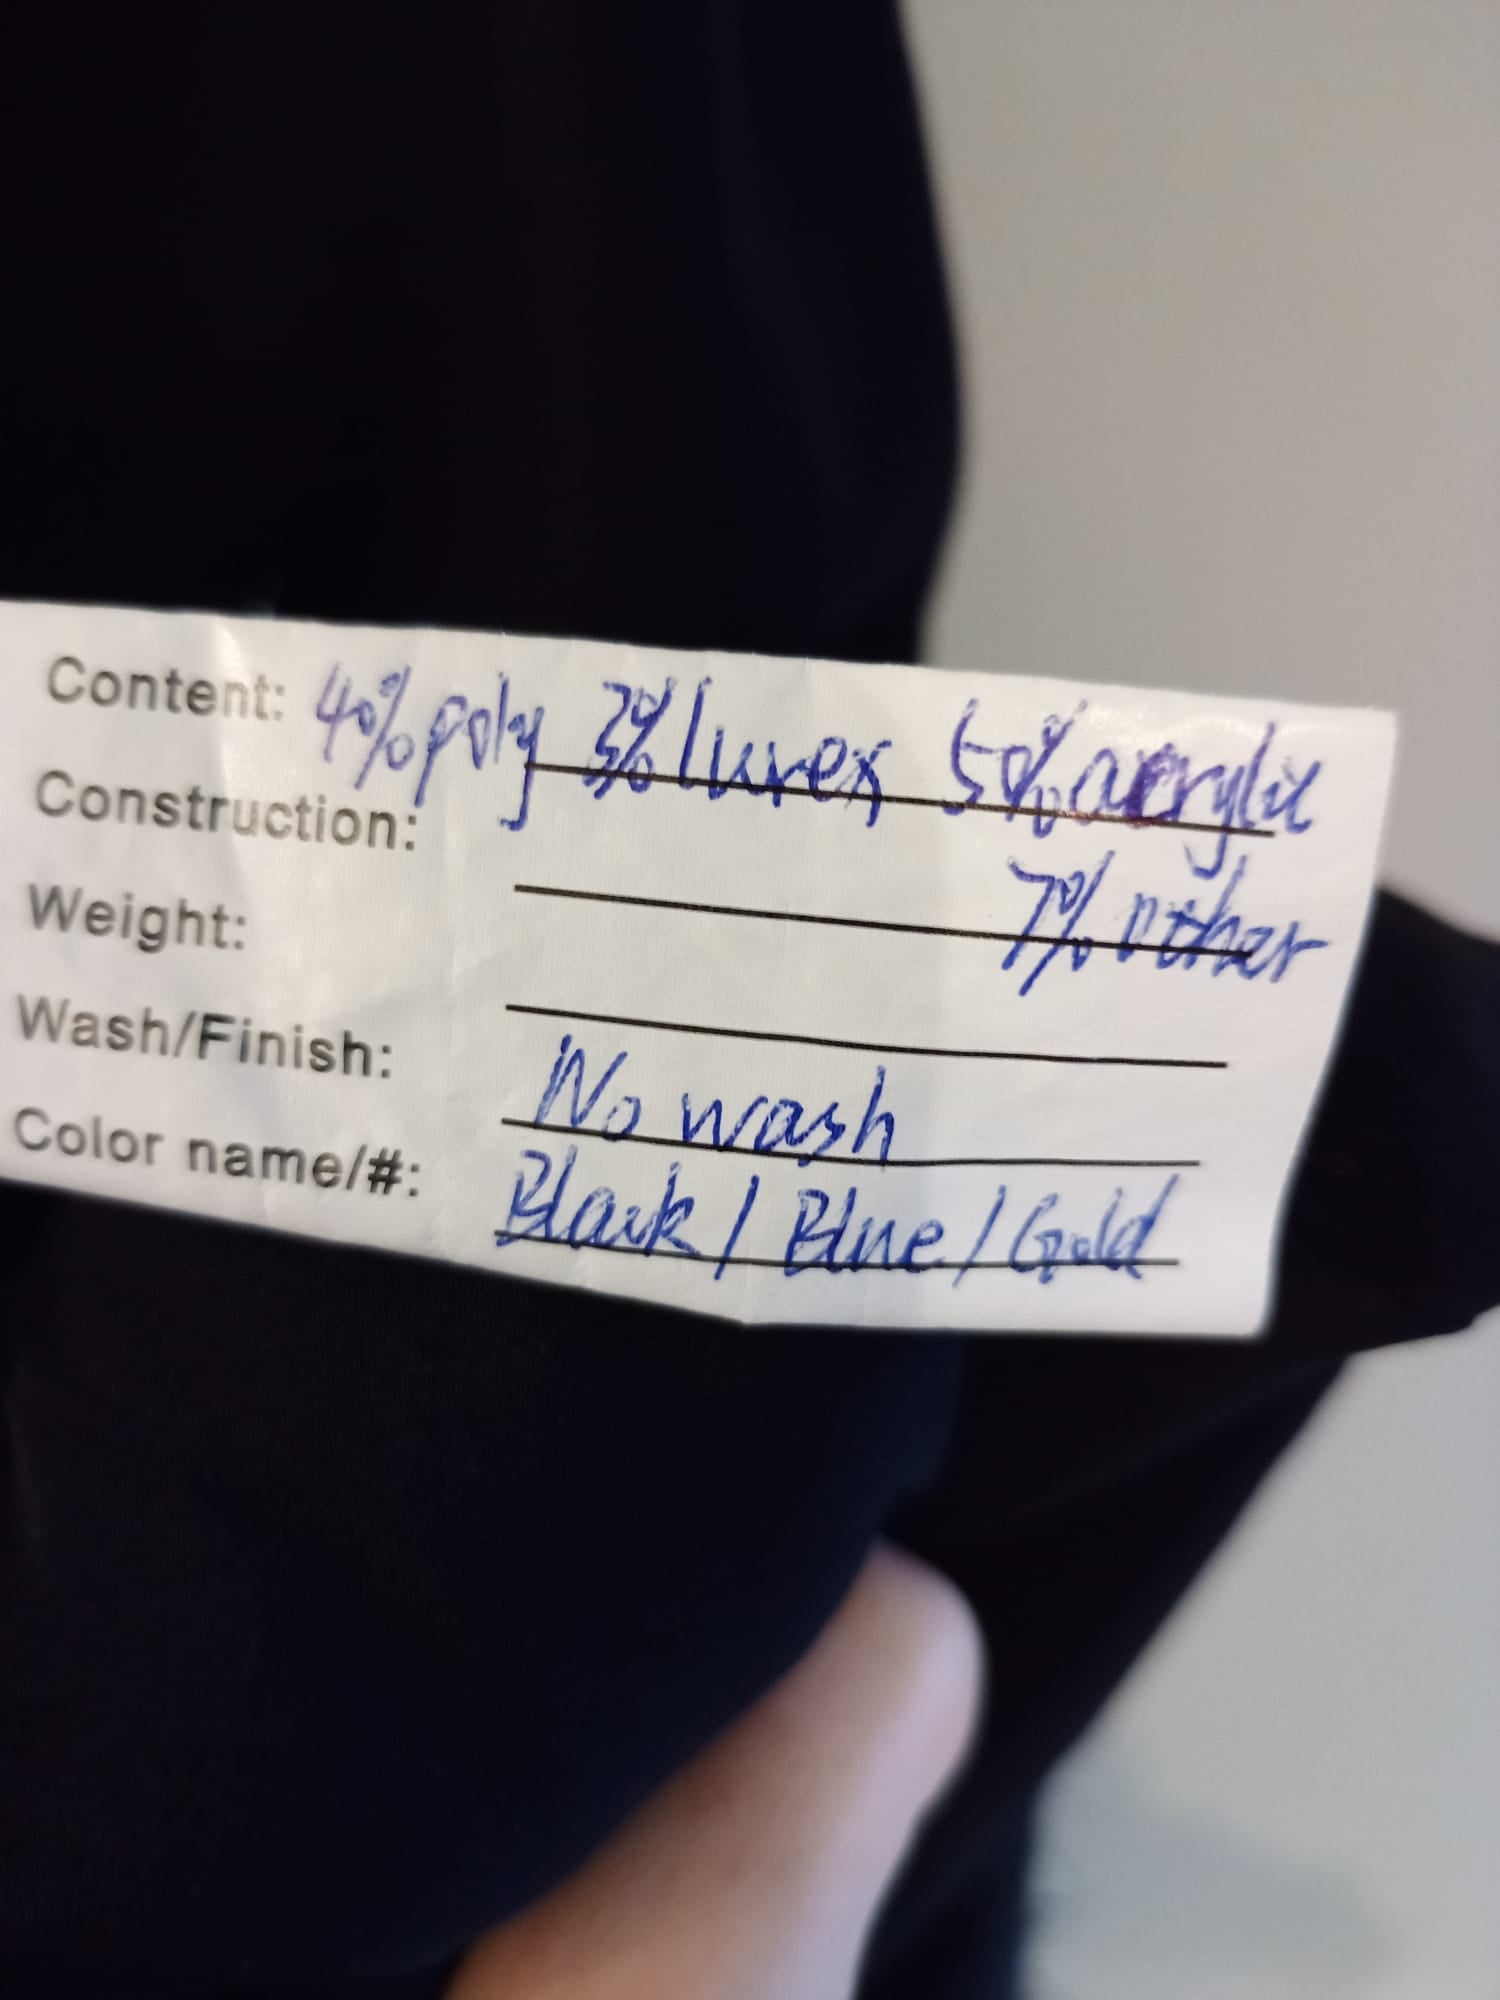 Content: 40% poly 3% lurex 50% acrylic
Construction: 7% other
Weight:
Wash/Finish: No wash
Color name/#: Black / Blue / Gold